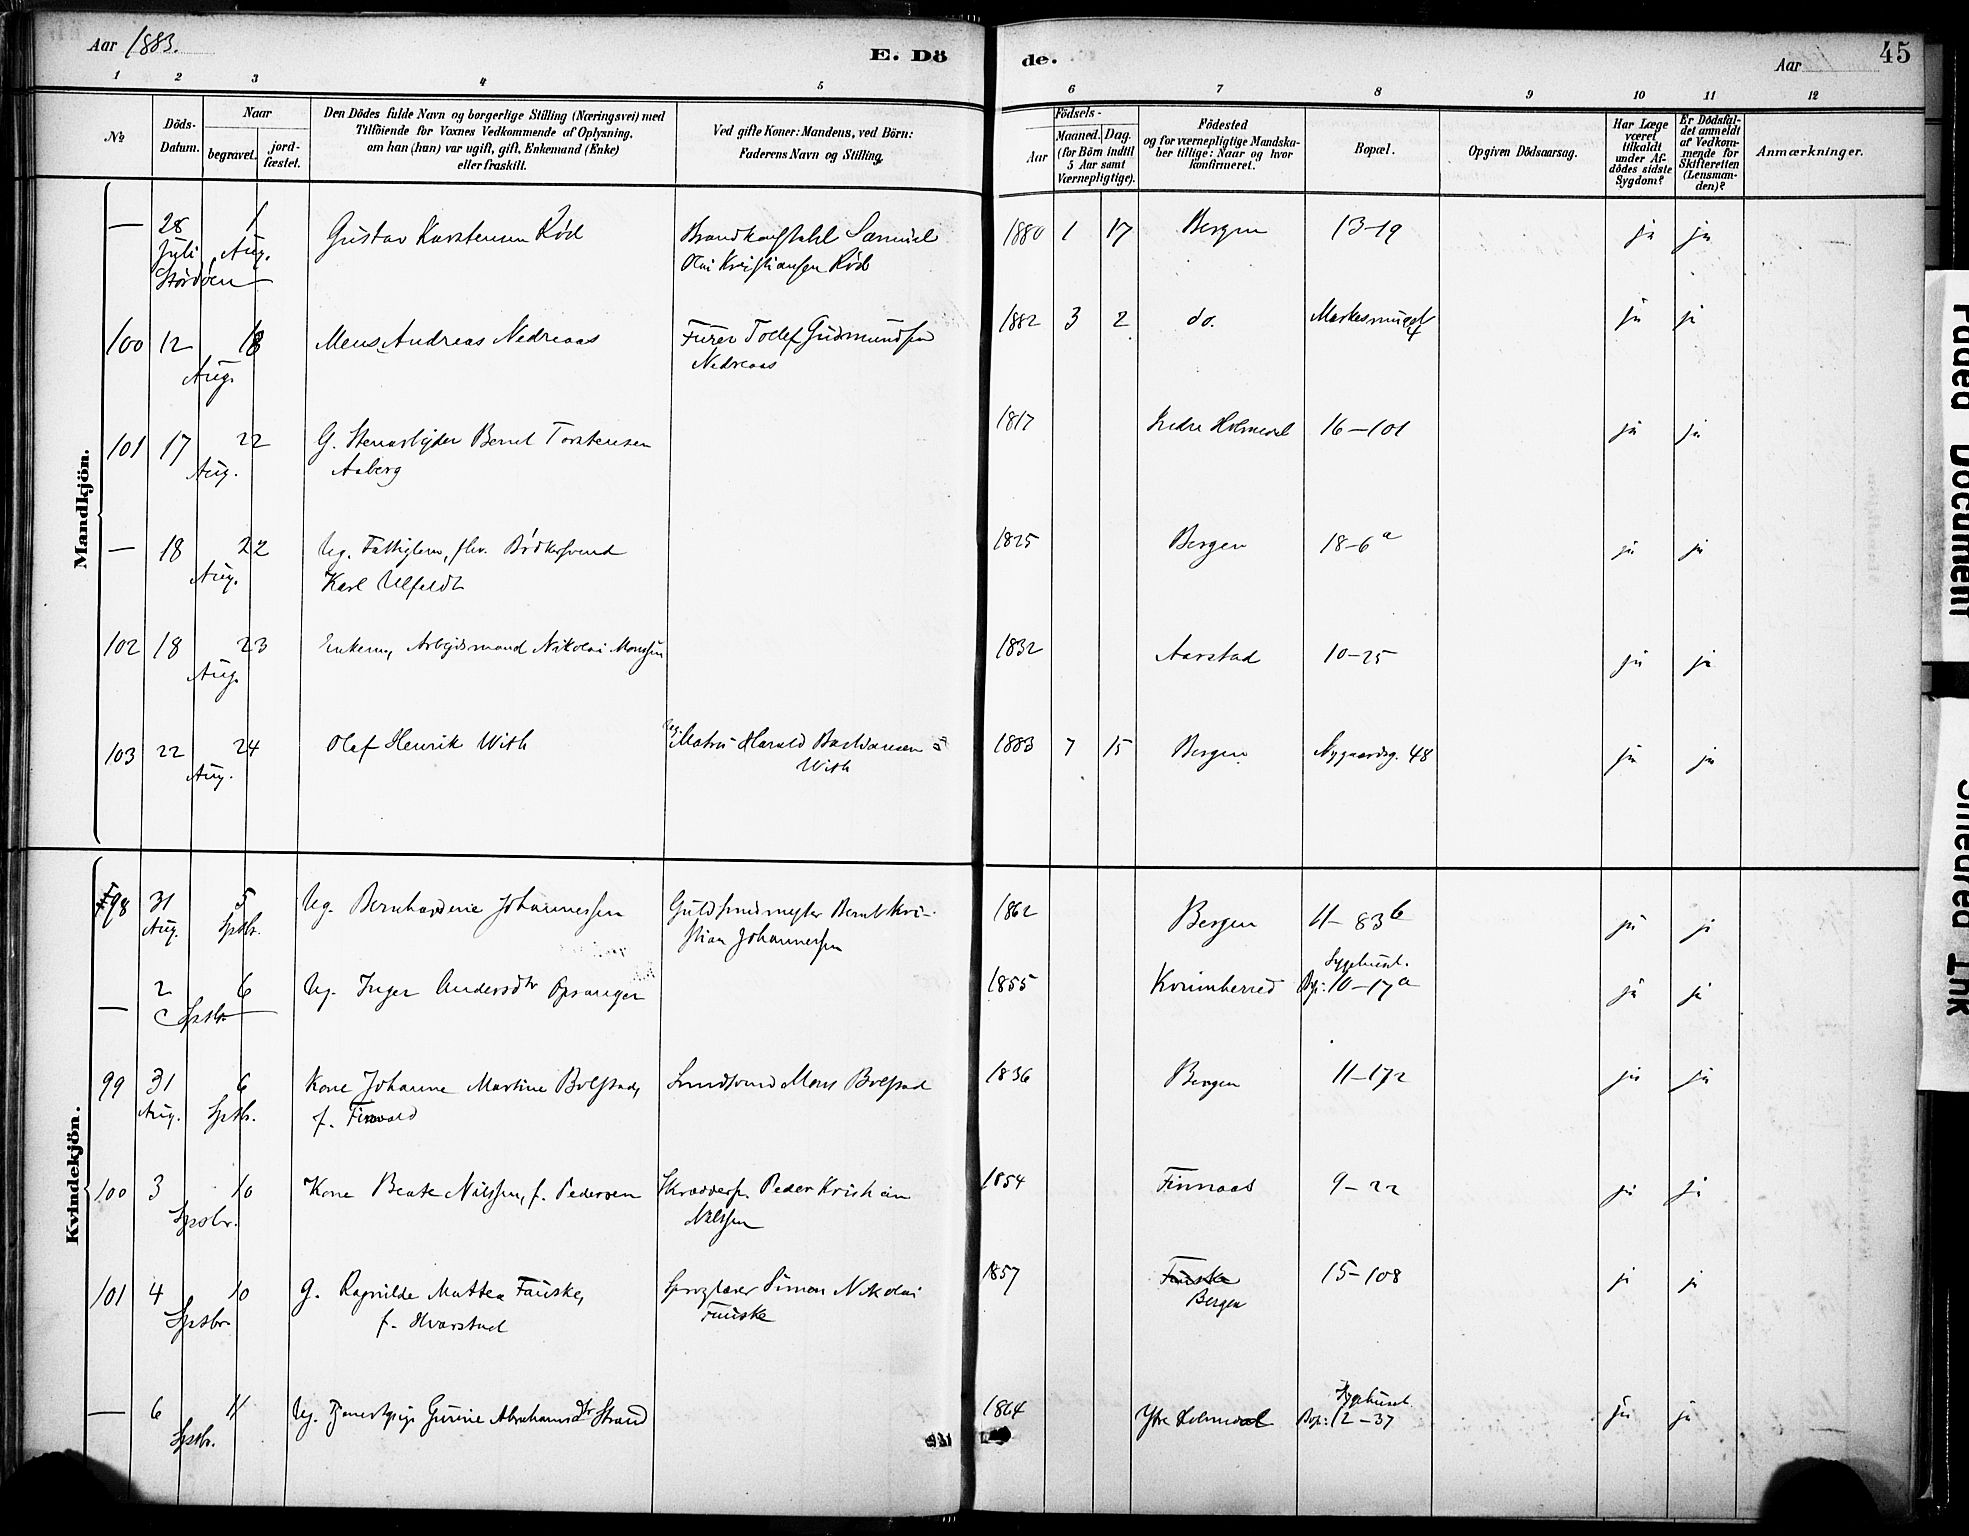 Aar 1883.
E. Dö
de.
Aar
45
1 2 3 4 5 6 7 8 9 10 11 12
№
Döds-
Datum.
Naar
begravet.
jord-
fæstet.
Den Dödes fulde Navn og borgerlige Stilling (Næringsvei) med
Tilföiende for Voxnes Vedkommende af Oplysning,
om han (hun) var ugift, gift, Enkemand (Enke)
eller fraskilt.
Ved gifte Koner: Mandens, ved Börn:
Faderens Navn og Stilling.
Födsels-
Aar
Maaned.
Dag.
(for Börn indtil
5 Aar samt
Værnepligtige).
Födested
og for værnepligtige Mandska-
ber tillige: Naar og hvor
konfirmeret.
Bopæl.
Opgiven Dödsaarsag.
Har Læge
været
tilkaldt
under Af-
dödes sidste
Sygdom?
Er Dödsfal-
det anmeldt
af Vedkom-
mende for
Skifteretten
(Lensman-
den)?
Anmærkninger.
Mandkjön.
— 28 1 Gustav Karstensen Röd Brandkonstabel Samuel 1880 1 17 Bergen 13-19 ja ja
Juli Aug. Olai Kristiansen Röd
Stördöen
100 12 18 Mens Andreas Nedreaas Furer Tollef Gudmundsen 1882 3 2 do. Markesmuget ja ja
Aug. Nedreaas 4
101 17 22 G. Stenarbejder Bernt Torstensen 1817 Indre Holmedal 16-101 ja ja
Aug. Aaberg
— 18 22 Ug. Fattiglem, fhv. Bödkersvend 1825 Bergen 18-6a ja ja
Aug. Karl Ulfeldt
102 18 23 Enkem, Arbejdsmand Nikolai Monssen 1832 Aarstad 10-25 ja ja
Aug.
103 22 24 Olaf Henrik With Matros Harald 1883 7 15 Bergen Nygaardsg. 48 ja ja
Aug. With
Kvindekjön.
98 31 5 Ug. Bernhardine Johannessen Guldsmedmester Bernt Kri- 1862 Bergen 11-83b ja ja
Aug. Sptbr. stian Johannessen
— 2 6 Ug. Inger Andersdtr Opsanger 1855 Kvinnherred Sygehuset. ja ja
Sptbr. Bop: 10-17a
99 31 6 Kone Johanne Martine Bolstad, Smedsvend Mons Bolstad 1836 Bergen 11-172 ja ja
Aug. Sptbr. f. Finvold
100 3 10 Kone Beate Nilssen, f. Pedersen Skræddersv. Peder Kristian 1854 Finnaas 9-22 ja ja
Sptbr. Nilssen
101 4 10 G. Ragnilde Mathea Fauske, Sproglærer Simon Nikolai 1857 Fauske 15-108 ja ja
Sptbr. f. Hvarstad Fauske Bergen
— 6 11 Ug. Tjenestepige Gurine Abrahamsdtr Strand 1864 Ytre Holmedal Sygehuset ja ja
Sptbr. Bop: 12-37
Faded Document
Smeared Ink